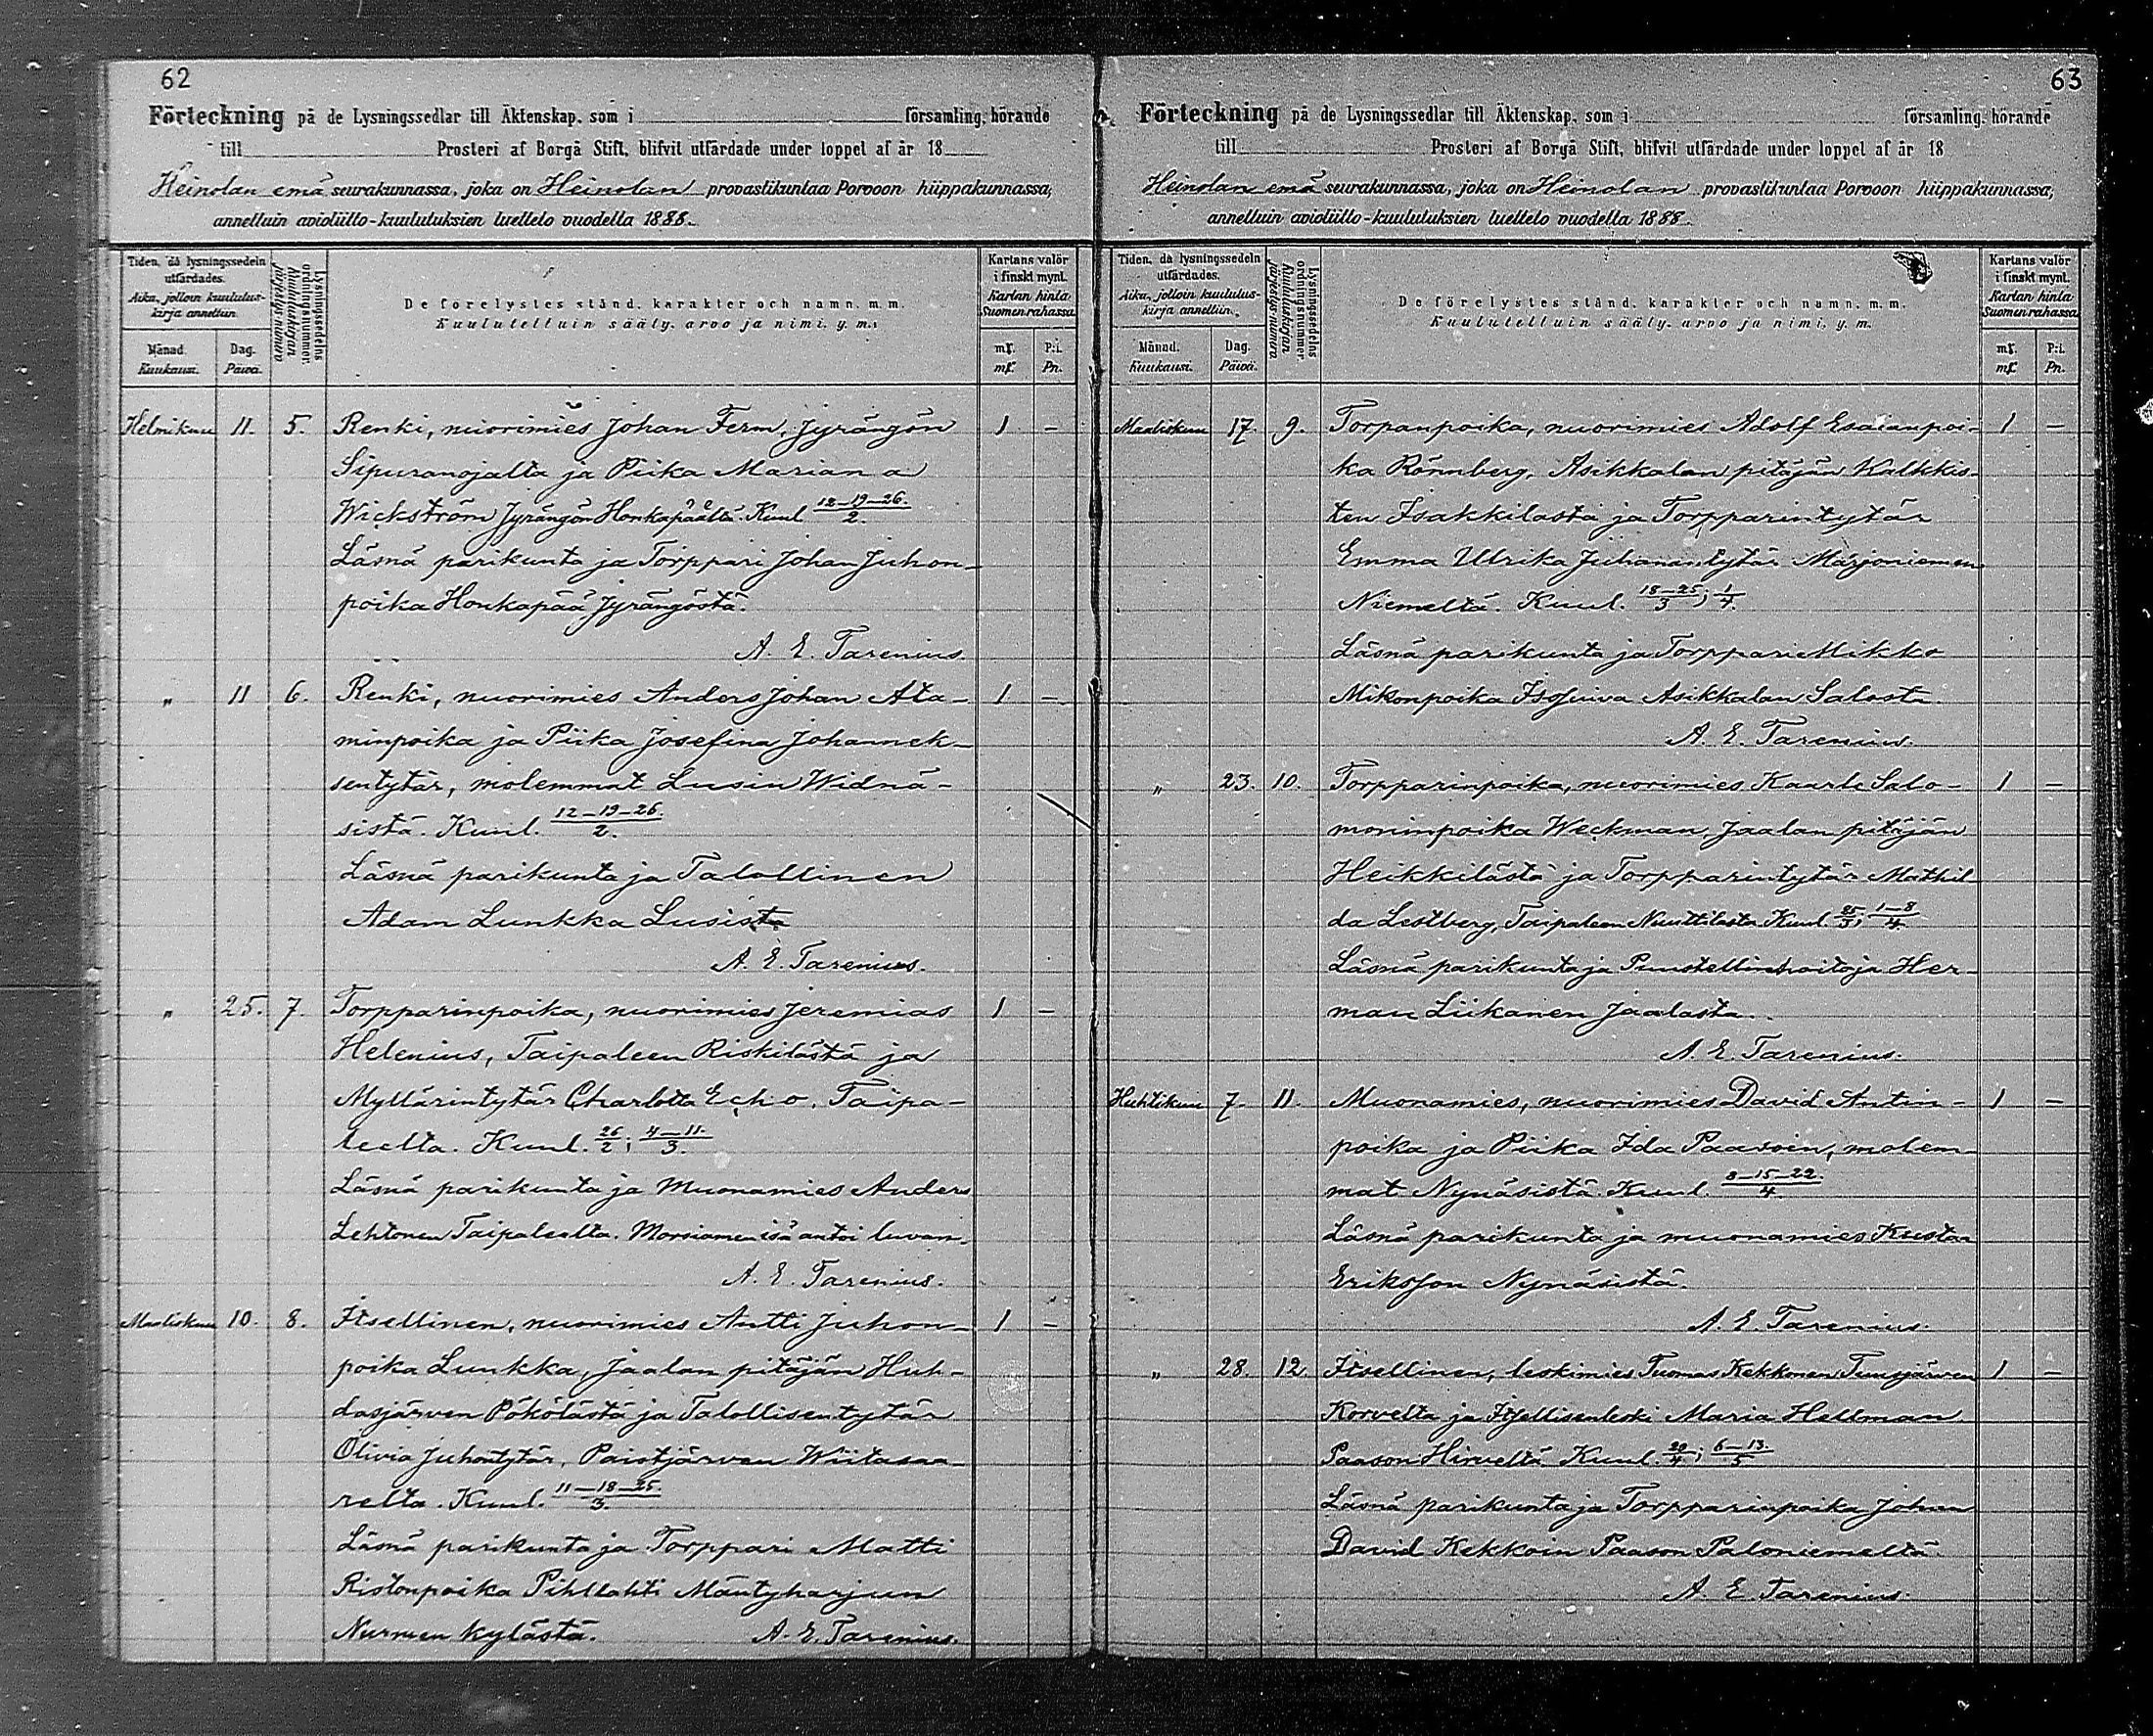 62
Förteckning på de Lysningssedlar till Äktenskap, som i församling, hörande
till Prosteri af Borgå Stift, blifvit utfärdade under loppet af år 18
Heinolan emä seurakunnassa, joka on Heinolan provastikuntaa Porvoon hiippakunnassa,
annettuin avioliitto-kuulutuksien luettelo vuodelta 1888.
Tiden, då lysningssedeln utfärdades.
Aika, jolloin kuulutus-kirja annettiin.
Lysningssedelns ordningsnummer.
Kuulutuskirjan järjestys-numero
De förelystes stånd, karakter och namn. m. m.
Kuulutettuin sääty, arvo ja nimi, y. m.
Kartans valör i finskt mynt.
Kartan hinta Suomen rahassa
Månad. Dag. mk. P:i.
Kuukausi. Päivä. mk. Pn.
Helmikuu 11. 5. Renki, nuorimies Johan Ferm, Jyrängön 1 —
Sipuranojalta ja Piika Mariana
Wickström Jyrängön Honkapäältä. Kuul 12–19–26./2.
Läsnä parikunta ja Torppari Johan Juhon-
poika Honkapää Jyrängöstä.
A. E. Tarenius.
" 11 6. Renki, nuorimies Anders Johan Ata- 1 —
minpoika ja Piika Josefina Johannek-
sentytär, molemmat Lusin Widnä-
sistä. Kuul. 12–19–26./2.
Läsnä parikunta ja Talollinen
Adam Lunkka Lusista
A. E. Tarenius.
" 25. 7. Torpparinpoika, nuorimies Jeremias 1 —
Helenius, Taipaleen Riskilästä ja
Myllärintytär Charlotta Echo, Taipa-
leelta. Kuul. 26/2; 4–11./3.
Läsnä parikunta ja Muonamies Anders
Lehtonen Taipaleelta. Morsiamen isä antoi luvan.
A. E. Tarenius.
Maaliskuu 10. 8. Itsellinen, nuorimies Antti Juhon- 1 —
poika Lunkka, Jaalan pitäjän Huh-
dasjärven Pökölästä ja Talollisentytär
Olivia Juhontytär, Paistjärven Wiitasaa-
relta. Kuul. 11–18–25./3.
Läsnä parikunta ja Torppari Matti
Ristonpoika Pihllahti Mäntyharjun
Nurmen kylästä. A. E. Tarenius.
63
Förteckning på de Lysningssedlar till Äktenskap, som i församling, hörande
till Prosteri af Borgå Stift, blifvit utfärdade under loppet af år 18
Heinolan emä seurakunnassa, joka on Heinolan provastikuntaa Porvoon hiippakunnassa,
annettuin avioliitto-kuulutuksien luettelo vuodelta 1888.
Tiden, då lysningssedeln utfärdades.
Aika, jolloin kuulutus-kirja annettiin.
Lysningssedelns ordningsnummer.
Kuulutuskirjan järjestys-numero
De förelystes stånd, karakter och namn. m. m.
Kuulutettuin sääty, arvo ja nimi, y. m.
Kartans valör i finskt mynt.
Kartan hinta Suomen rahassa
Månad. Dag. mk. P:i.
Kuukausi. Päivä. mk. Pn.
Maaliskuu 17. 9. Torpanpoika, nuorimies Adolf Esaianpoi- 1 —
ka Rönnberg, Asikkalan pitäjän Kalkkis-
ten Isakkilasta ja Torpparintytär
Emma Ulrika Juhanantytär Marjoniemen
Niemeltä. Kuul. 18–25/3; 1/4.
Läsnä parikunta ja Torppari Mikko
Mikonpoika Isojuiva Asikkalan Salosta.
A. E. Tarenius.
" 23. 10. Torpparinpoika, nuorimies Kaarle Salo- 1 —
moninpoika Weckman, Jaalan pitäjän
Heikkilästä ja Torpparintytär Mathil-
da Lestberg, Taipaleen Nuuttilasta. Kuul. 25/3; 1–8/4
Läsnä parikunta ja Puustellinhoitaja Her-
man Liikanen Jaalasta.
A. E. Tarenius.
Huhtikuu 7. 11. Muonamies, nuorimies David Antin- 1 —
poika ja Piika Ida Paavoin, molem-
mat Nynäsistä Kuul. 8–15–22./4.
Läsnä parikunta ja muonamies Kustaa
Eriksson Nynäsistä.
A. E. Tarenius.
" 28. 12. Itsellinen, leskimies Tuomas Kekkonen Tuusjärven 1 —
Korvelta ja Itsellisenleski Maria Hellman
Paason Hirveltä Kuul. 29/4; 6–13./5
Läsnä parikunta ja Torpparinpoika Johan
David Kekkoin Paason Paloniemeltä.
A. E. Tarenius.